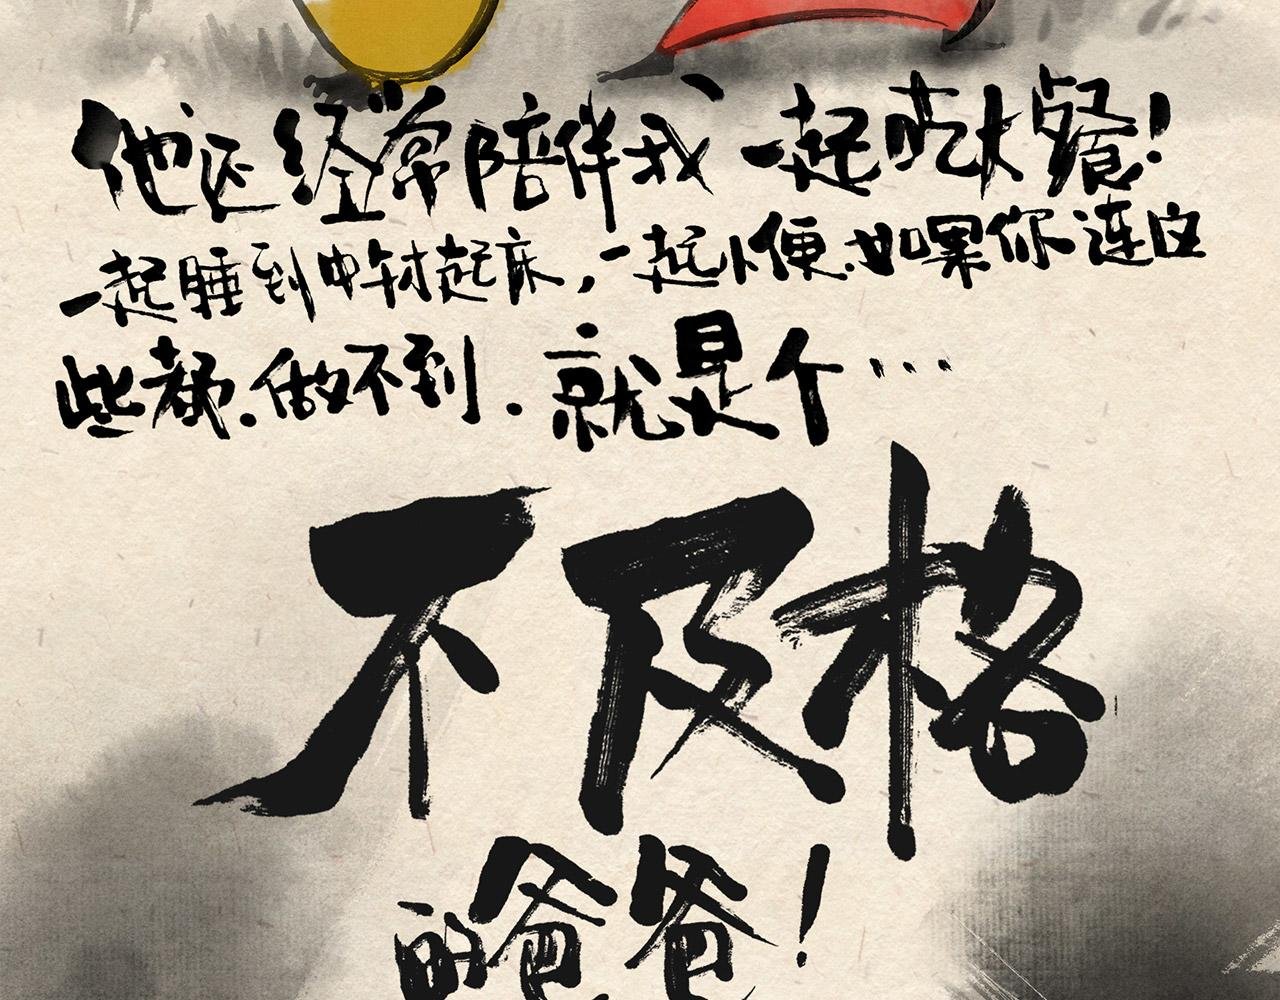 他还经常陪伴我一起吃大餐！
一起睡到中午才起床，一起小便.如果你连这
些都.做不到.就是个…
不及格
的爸爸！